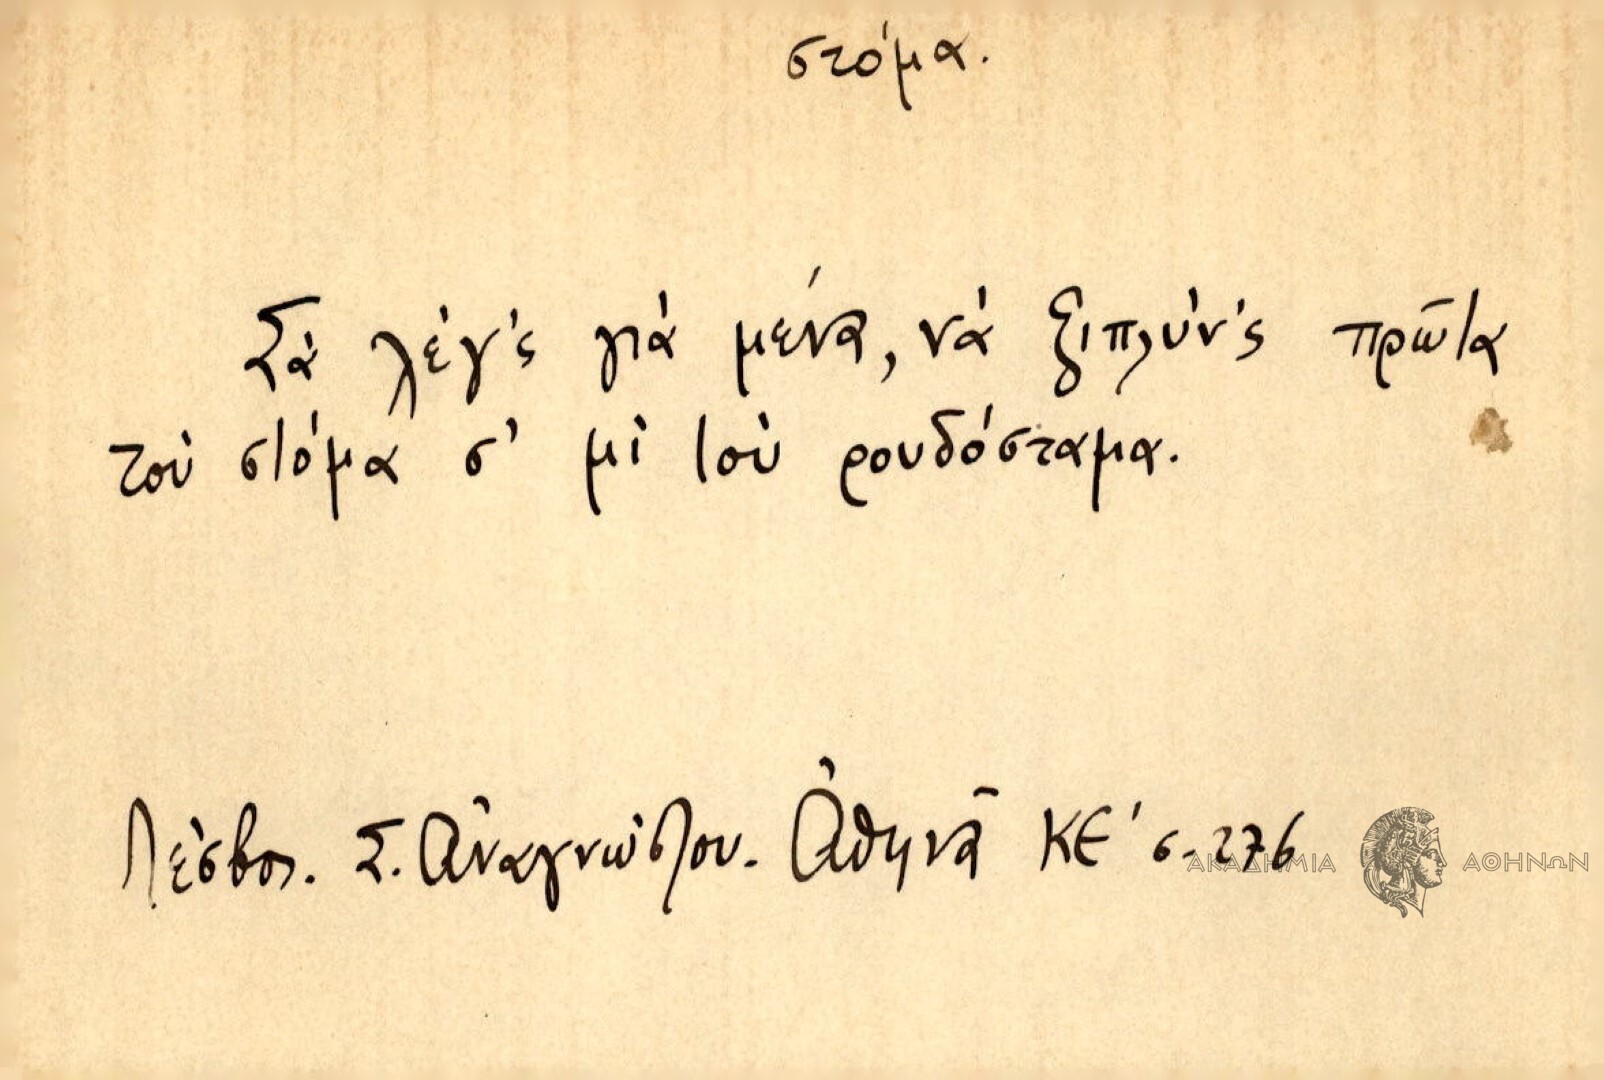 στόμα.
Σὰ λέγ'ς γιὰ μένα, νὰ ξιπλύν'ς πρῶτα
τοὺ στόμα σ' μὶ τοὺ ρουδόσταμα.
Λέσβος. Σ. Ἀναγνώστου. Ἀθηνᾶ ΚΕ' σ. 276
ΑΚΑΔΗΜΙΑ ΑΘΗΝΩΝ